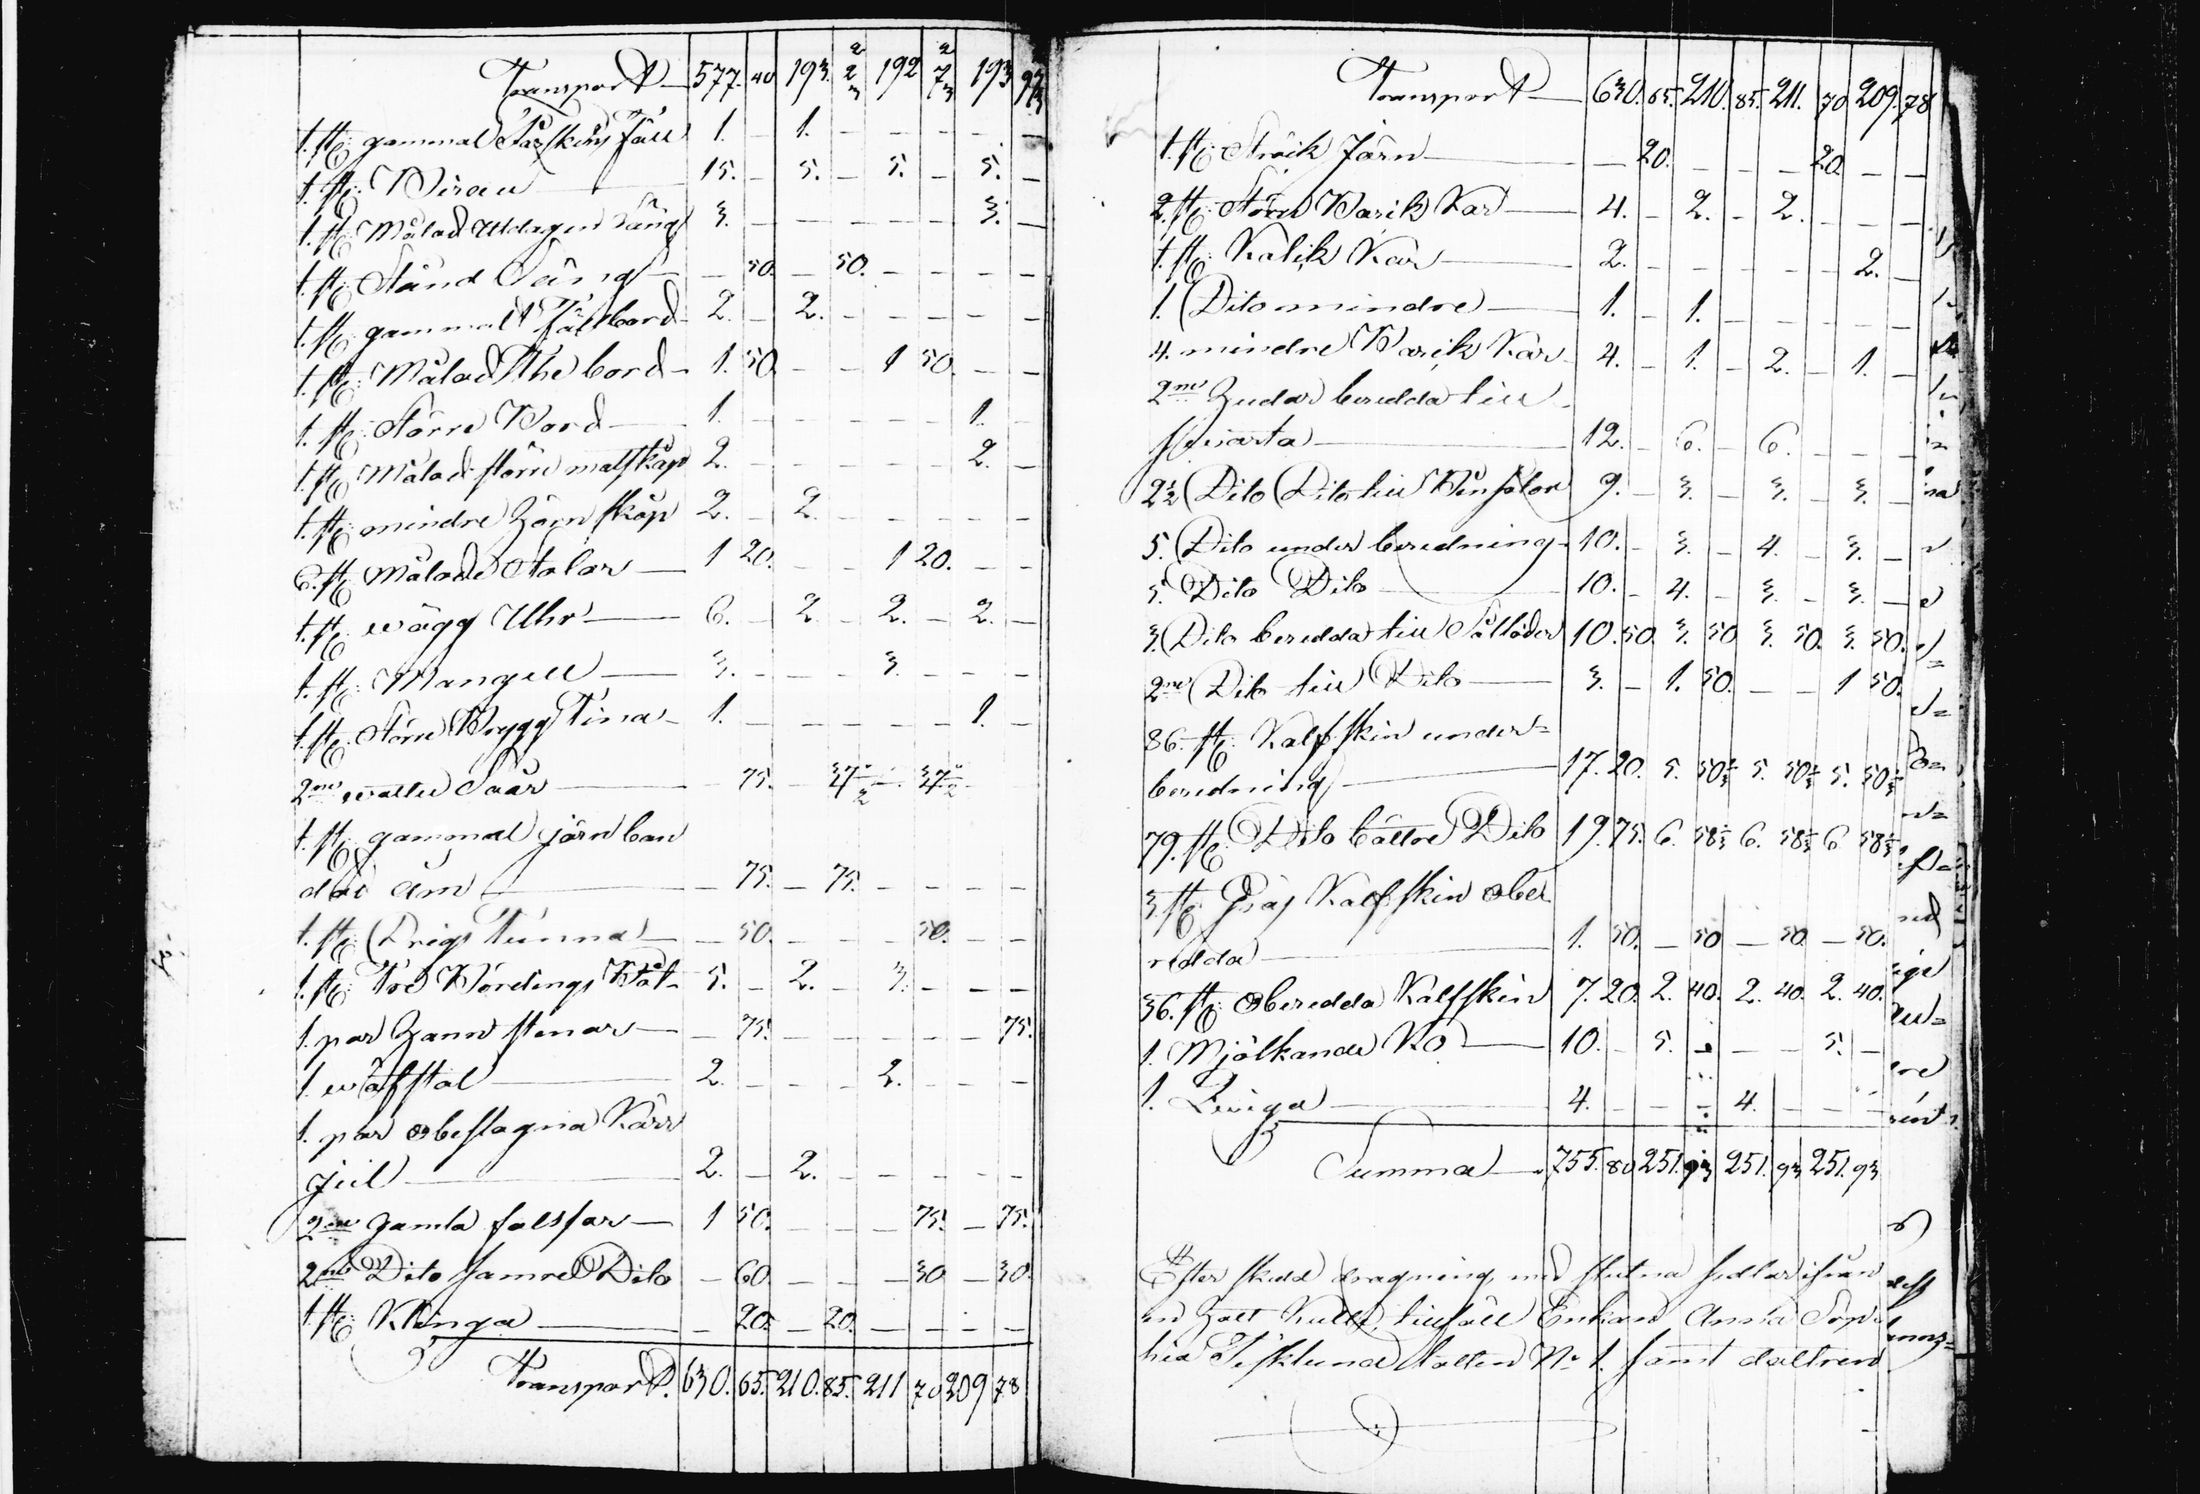 Transport — 577. 40 193. 2 2/3 192 2 7/3 193 93
1. st: gammal Fårskins fäll 1. — 1. — — — — —
1. st: Byrau 15. — 5. — 5. — 5. —
1. st: Målad Utdragen Säng 3. — — — — — 3. —
1. st: Ständ Säng — 50. — 50. — — — —
1. st: gammalt Fällbord 2. — 2. — — — — —
1. st: Målad The bord — 1. 50. — — 1 50. — —
1. st: Större Bord — 1. — — — — — 1.
1. st: Målad större matskåp 2. — — — — — 2. —
1. st: mindre Hörn skåp 2. — 2. — — — — —
6. st: Målade Stolar — 1 20. — — 1 20. — —
1. st: wägg Uhr — 6. — 2. — 2. — 2. —
1. st: Mangell — 3. — — — 3. — — —
1. st: Större Brygg Tina — 1. — — — — — 1. —
2ne watten Såår — — 75. — 37 1/2 — 37 1/2
1. st: gammal järn ban
dat åm — — 75. — 75. — — — —
1. st: Drigs Tunna — — 50. — — — 50. — —
1. st: Båt — 5. — 2. — 3. — — —
1. par Hand stenar — — 75. — — — — — 75.
1. wäfstol — 2. — — — 2. — — —
1. par obeslagna Kärr
hiul — 2. — 2. — — — — —
2ne gamla — 1 50. — — — 75. — 75.
2ne Dito Dito — 60. — — — 30 — 30.
1. st: Klinga — — 20. — 20. — — — —
Transport. 630. 65. 210. 85. 211 70 209 78
Transport — 630. 65. 210. 85. 211. 70 209. 78
1. st: Sträik Järn — — 20. — — — 20. — —
2. st: Större Barik Kar — 4. — 2. — 2. — — —
1. st: Kalik Kar — 2. — — — — — 2. —
1. Dito mindre — 1. — 1. — — — — —
4. mindre Barik Kar — 4. — 1. — 2. — 1. —
2ne Hudar beredda till
swarta — 12. — 6. — 6. — — —
2 1/2 Dito Dito till Binsolor 9. — 3. — 3. — 3. —
5. Dito under beredning — 10. — 3. — 4. — 3. —
5. Dito Dito — 10. — 4. — 3. — 3. —
3. Dito beredda till Sålläder 10. 50. 3. 50 3. 50. 3. 50.
2ne Dito till Dito — 3. — 1. 50. — — 1 50.
86. st: Kalfskin under=
beredning — 17. 20. 5. 5. 5.
79. st: Dito bättre Dito 19. 75. 6. 58 1/3 6. 58 1/3 6 58 1/3
3 st: Kalfskin obe
redda — 1. 50. — 50 — 50 — 50.
36. st: obereddа Kalfskin 7. 20. 2. 40. 2. 40. 2. 40.
1. Mjölkande Ko — 10. — 5. — — — 5. —
1. Qwiga — 4. — — — 4. — — —
Summa — 755. 80 251. 93 251. 93 251. 93
Efter skedd dragning med slutna sedlar ifrån
en Hatt Kulle, tillföll Enkan Anna Sop
hia lotten No 1. samt dottren